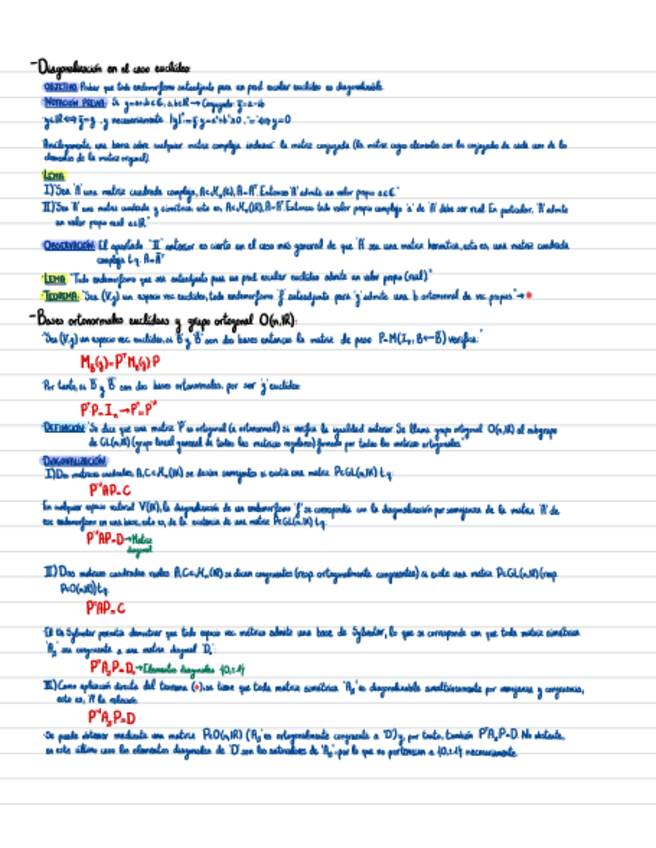 -Diagonalización en el caso euclídeo:
OBJETIVO: Probar que todo endomorfismo autoadjunto para un prod. escalar euclídeo es diagonalizable.
NOTACIÓN PREVIA: Si y=a+ib∈ℂ, a,b∈ℝ→Conjugado: ȳ=a-ib
y∈ℝ⟺ȳ=y, y necesariamente |y|²=ȳ·y=a²+b²≥0, "="⟺y=0
Análogamente, una barra sobre cualquier matriz compleja indicará la matriz conjugada (la matriz cuyos elementos son los conjugados de cada uno de los
elementos de la matriz original).
LEMA:
I) "Sea 'A' una matriz cuadrada compleja, Entonces 'A' admite un valor propio a∈ℂ"
II) "Sea 'A' una matriz cuadrada y simétrica, esto es, Entonces todo valor propio complejo 'a' de 'A' debe ser real. En particular, 'A' admite
un valor propio real a∈ℝ"
OBSERVACIÓN: El apartado "II" anterior es cierto en el caso más general de que 'A' sea una matriz hermítica, esto es, una matriz cuadrada
compleja t.q.
LEMA: "Todo endomorfismo que sea autoadjunto para un prod. escalar euclídeo admite un valor propio (real)"
TEOREMA: "Sea (V,g) un espacio vec. euclídeo, todo endomorfismo 'f' autoadjunto para 'g' admite una b. ortonormal de vec. propios"→*
-Bases ortonormales euclídeas y grupo ortogonal O(n,ℝ):
"Sea (V,g) un espacio vec. euclídeo, si B y B̄ son dos bases entonces la matriz de paso verifica:"
Por tanto, si B y B̄ son dos bases ortonormales, por ser 'g' euclídeo:
DEFINICIÓN: "Se dice que una matriz 'P' es ortogonal (u ortonormal) si verifica la igualdad anterior. Se llama grupo ortogonal O(n,ℝ) al subgrupo
de GL(n,ℝ) (grupo lineal general de todas las matrices regulares) formado por todas las matrices ortogonales."
DIAGONALIZACIÓN:
I) Dos matrices cuadradas, se dicen semejantes si existe una matriz t.q.
P⁻¹AP=C
En cualquier espacio vectorial la diagonalización de un endomorfismo 'f' se corresponde con la diagonalización por semejanza de la matriz 'A' de
ese endomorfismo en una base, esto es, de la existencia de una matriz t.q.
P⁻¹AP=D→Matriz
diagonal
II) Dos matrices cuadradas reales se dicen congruentes (resp. ortogonalmente congruentes) si existe una matriz P∈GL(n,ℝ) (resp.
P∈O(n,ℝ)) t.q.
PᵗAP=C
El th Sylvester permitía demostrar que todo espacio vec. métrico admite una base de Sylvester, lo que se corresponde con que toda matriz simétrica
sea congruente a una matriz diagonal
→Elementos diagonales
III) Como aplicación directa del teorema (*), se tiene que toda matriz simétrica es diagonalizable simultáneamente por semejanza y congruencia,
esto es,
Se puede obtener mediante una matriz P∈O(n,ℝ) y, por tanto, también No obstante,
en este último caso los elementos diagonales de 'D' son los autovalores de por lo que no pertenecen a necesariamente.